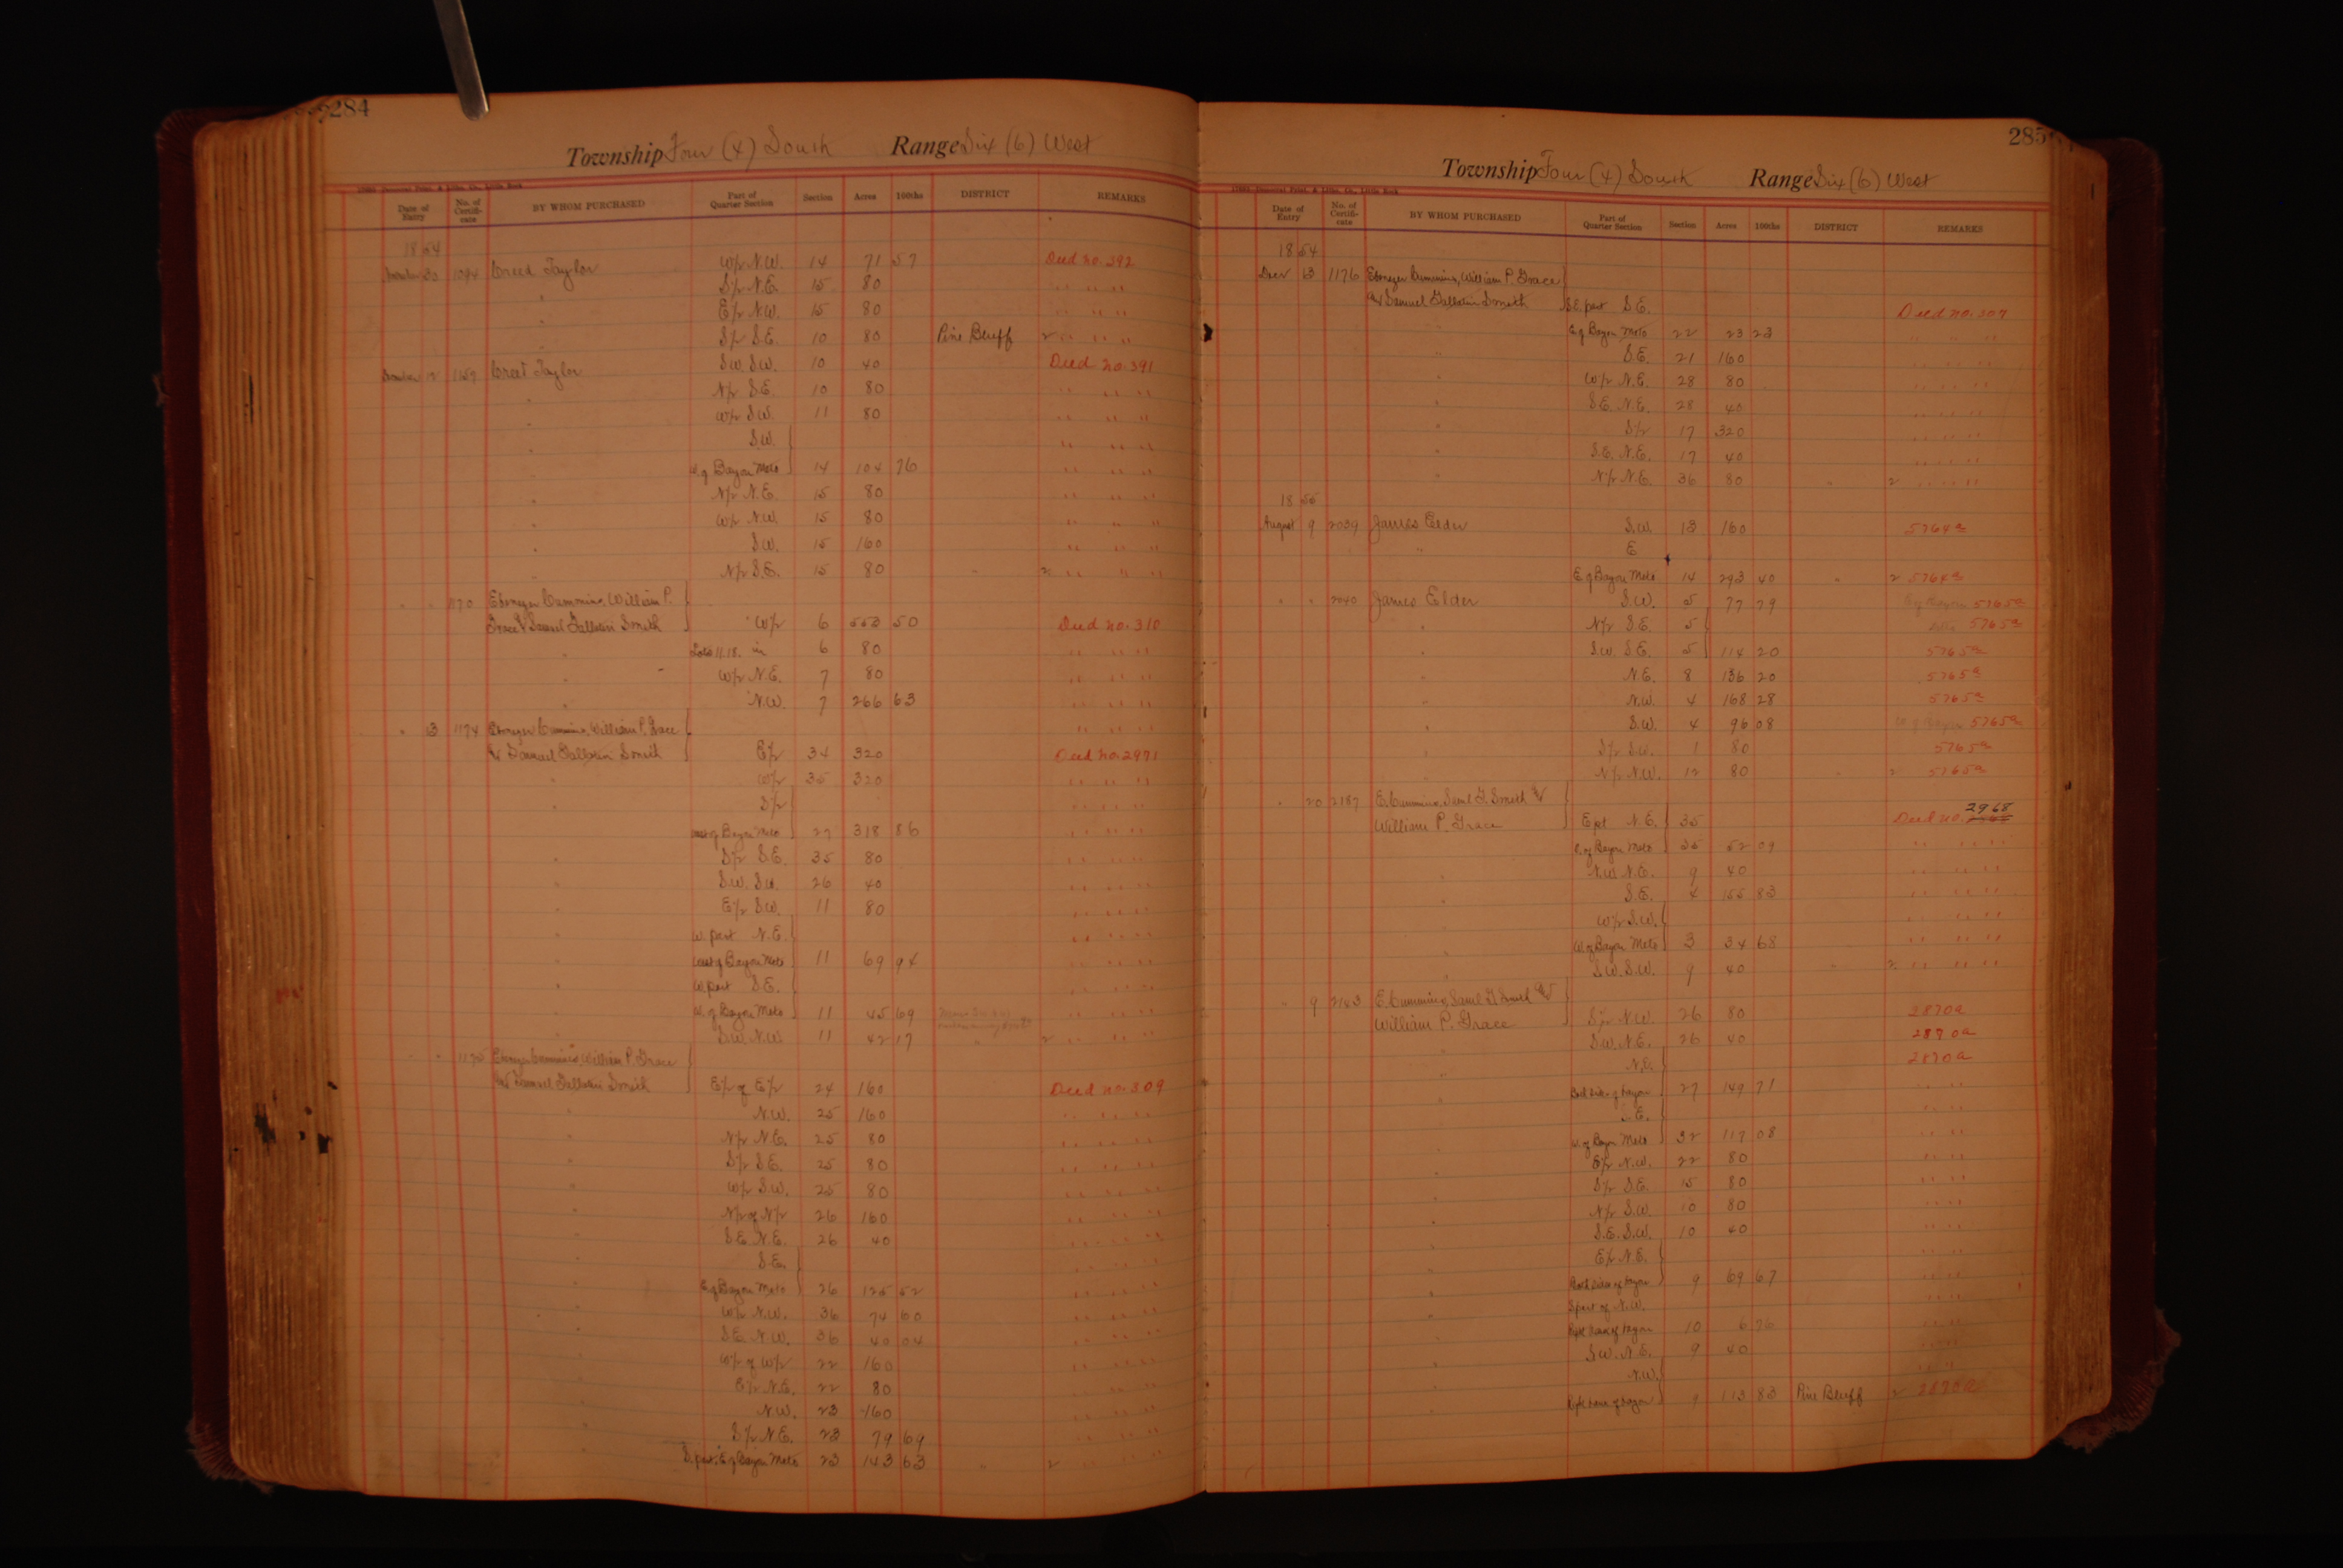 284
Township Four (4) South Range Six (6) West
Date of Entry No. of Certifi-cate BY WHOM PURCHASED Part of Quarter Section Section Acres 100ths DISTRICT REMARKS
1854
30 1094 Creed Taylor W/2 N.W. 14 71 57 Deed no. 392
" S/2 N.E. 15 80 " " "
" E/2 N.W. 15 80 " " "
" S/2 S.E. 10 80 Pine Bluff " " "
12 Creed Taylor S.W. S.W. 10 40 Deed no. 391
" N/2 S.E. 10 80 " " "
" W/2 S.W. 11 80 " " "
" S.W. " " "
" W. of Bayou Meto 14 104 76 " " "
" N/2 N.E. 15 80 " " "
" W/2 N.W. 15 80 " " "
" S.W. 15 160 " " "
" N/2 S.E. 15 80 " " " "
" " 1170 Ebenezer Cummins, William P.
Grace & Samuel Gallatin Smith W/2 6 553 50 Deed no. 310
" Lots 11.18. in 6 80 " " "
" W/2 N.E. 7 80 " " "
" N.W. 7 266 63 " " "
" 13 1174 Ebenezer Cummins, William P. Grace " " "
& Samuel Gallatin Smith E/2 34 320 Deed no. 2971
" W/2 35 320 " " "
" S/2 " " "
west of Bayou Meto 27 318 86 " " "
" S/2 S.E. 35 80 " " "
" S.W. S.W. 26 40 " " "
" E/2 S.W. 11 80 " " "
" W. part N.E. " " "
west of Bayou Meto 11 69 94 " " "
" W. part S.E. " " "
W. of Bayou Meto 11 45 69 " " "
" S.W. N.W. 11 42 17 " " " "
" " 1175 Ebenezer Cummins, William P. Grace
& Samuel Gallatin Smith E/2 of E/2 24 160 Deed no. 309
" N.W. 25 160 " " "
" N/2 N.E. 25 80 " " "
" S/2 S.E. 25 80 " " "
" W/2 S.W. 25 80 " " "
" N/2 of N/2 26 160 " " "
" S.E. N.E. 26 40 " " "
" S.E. " " "
" E. of Bayou Meto 26 125 52 " " "
" W/2 N.W. 36 74 60 " " "
" S.E. N.W. 36 40 04 " " "
" W/2 of W/2 22 160 " " "
" E/2 N.E. 22 80 " " "
" N.W. 23 160 " " "
" S/2 N.E. 23 79 69 " " "
" S. part. E. of Bayou Meto 23 143 63 " " " "
285
Township Four (4) South Range Six (6) West
Date of Entry No. of Certifi-cate BY WHOM PURCHASED Part of Quarter Section Section Acres 100ths DISTRICT REMARKS
1854
Decr 13 1176 Ebenezer Cummins, William P. Grace
& Samuel Gallatin Smith S.E. part S.E. Deed no. 307
E. of Bayou Meto 22 23 23 " " "
" S.E. 21 160 " " "
" W/2 N.E. 28 80 " " "
" S.E. N.E. 28 40 " " "
" S/2 17 320 " " "
" S.E. N.E. 17 40 " " "
" N/2 N.E. 36 80 " " " "
1855
August 9 2039 James Elder S.W. 13 160 5764a
" E
E. of Bayou Meto 14 293 40 " 5764a
" " 2040 James Elder S.W. 5 77 79 5765a
" N/2 S.E. 5 5765a
" S.W. S.E. 5 114 20 5765a
" N.E. 8 136 20 5765a
" N.W. 4 168 28 5765a
" S.W. 4 96 08 5765a
" S/2 S.W. 1 80 5765a
" N/2 N.W. 12 80 " 5765a
" 20 2187 E. Cummins, Saml G. Smith &
William P. Grace E pt N.E. 35 Deed no. 2968
E. of Bayou Meto 35 52 09 " " "
" N.W. N.E. 9 40 " " "
" S.E. 4 155 83 " " "
" W/2 S.W. " " "
" W. of Bayou Meto 3 34 68 " " "
" S.W. S.W. 9 40 " " " "
" 9 2143 E. Cummins, Saml G. Smith &
William P. Grace S/2 N.W. 26 80 2870a
" S.W. N.E. 26 40 2870a
" N.E. 2870a
" 27 149 71 " "
S.E. " "
" W. of Bayou Meto 32 117 08 " "
" E/2 N.W. 22 80 " "
" S/2 S.E. 15 80 " "
" N/2 S.W. 10 80 " "
" S.E. S.W. 10 40 " "
" E/2 N.E. " "
" 9 69 67 " "
" S part of N.W. " "
10 6 76 " "
" S.W. N.E. 9 40 " "
" N.W. " "
" 9 113 83 Pine Bluff 2870a